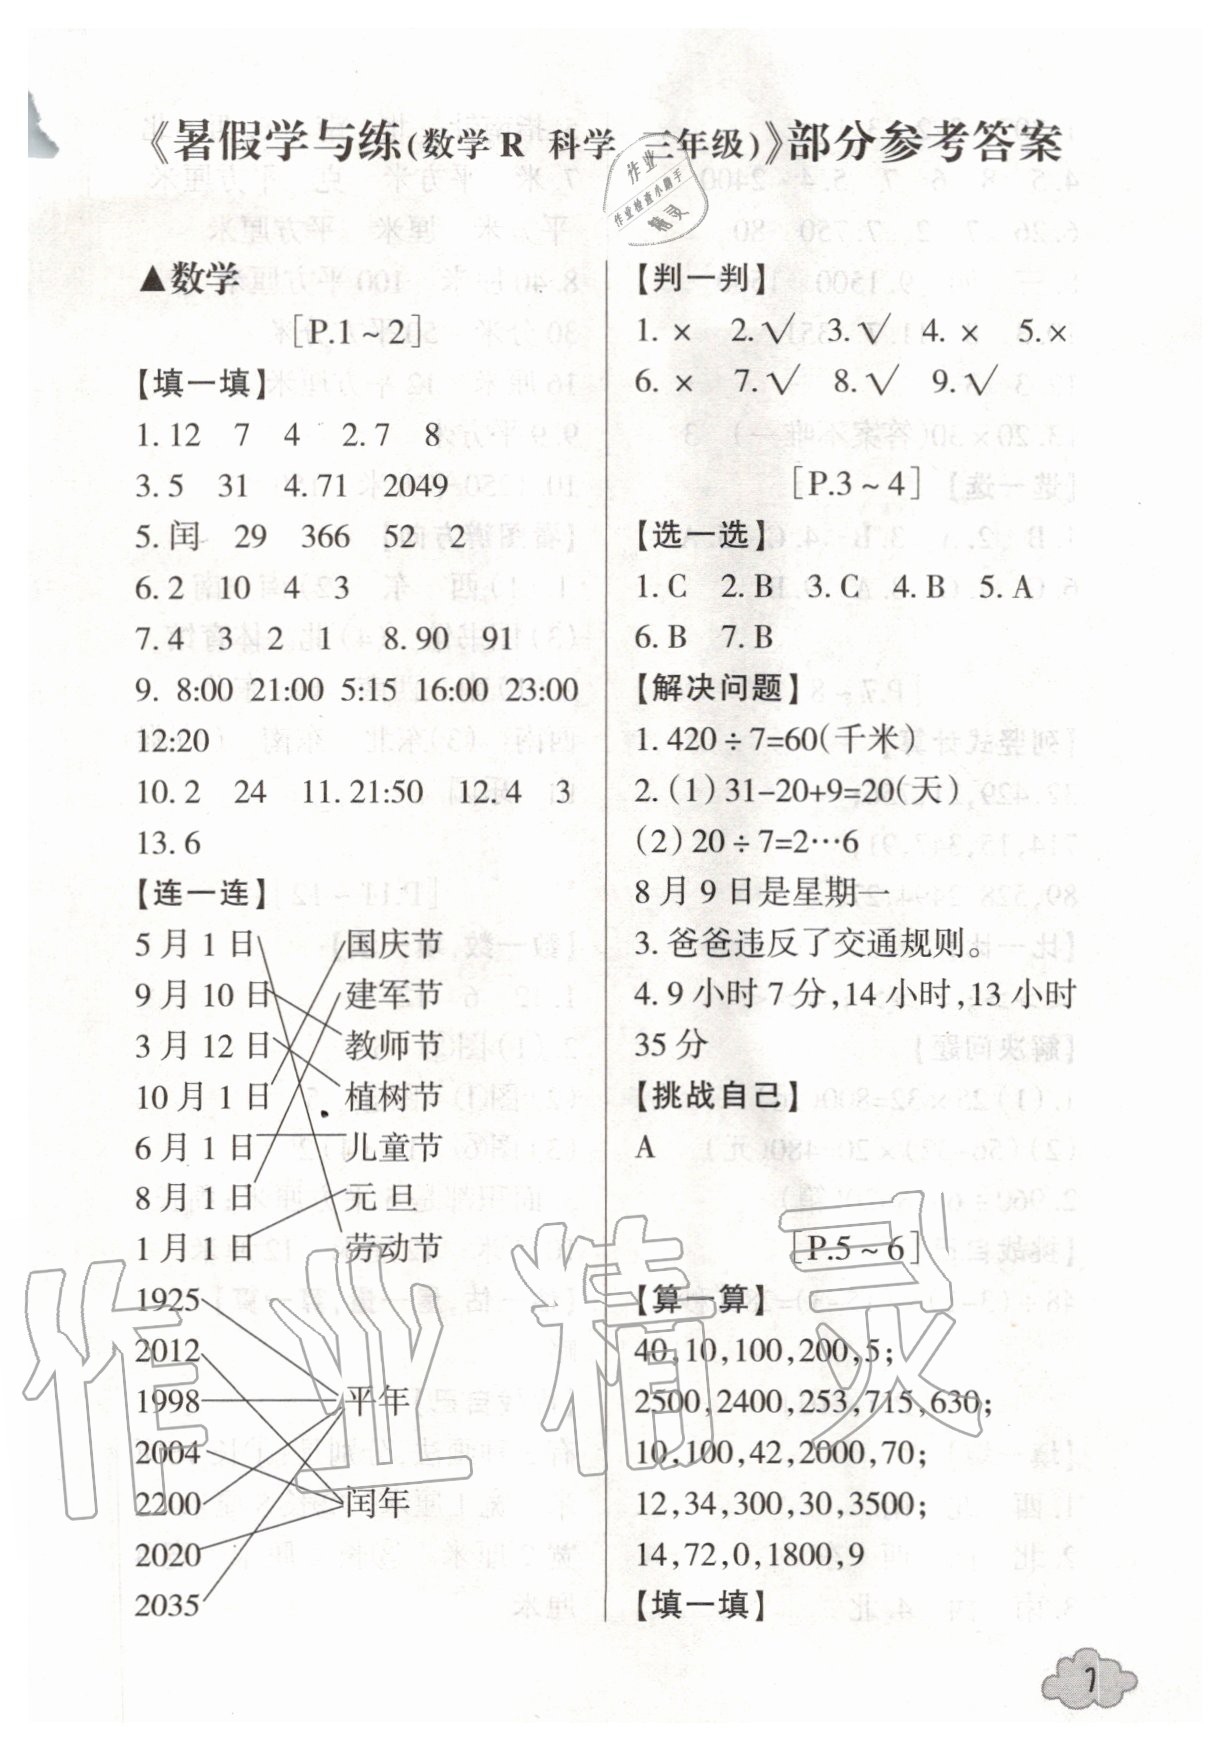 《暑假学与练(数学R 科学 三年级)》部分参考答案
▲数学
[P.1~2]
【填一填】
1.12 7 4 2.7 8
3.5 31 4.71 2049
5.闰 29 366 52 2
6.2 10 4 3
7.4 3 2 1 8.90 91
9. 8:00 21:00 5:15 16:00 23:00
12:20
10.2 24 11.21:50 12.4 3
13.6
【连一连】
5月1日 国庆节
9月10日 建军节
3月12日 教师节
10月1日 植树节
6月1日 儿童节
8月1日 元旦
1月1日 劳动节
1925
2012
1998 平年
2004
2200 闰年
2020
2035
【判一判】
1. × 2.√ 3.√ 4. × 5.×
6. × 7.√ 8.√ 9.√
[P.3~4]
【选一选】
1.C 2.B 3.C 4.B 5.A
6.B 7.B
【解决问题】
1.420÷7=60(千米)
2.(1)31-20+9=20(天)
(2)20÷7=2…6
8月9日是星期一
3.爸爸违反了交通规则。
4.9小时7分,14小时,13小时
35分
【挑战自己】
A
[P.5~6]
【算一算】
40,10,100,200,5;
2500,2400,253,715,630;
10,100,42,2000,70;
12,34,300,30,3500;
14,72,0,1800,9
【填一填】
1
作业
作业检查小助手
精灵
作业精灵